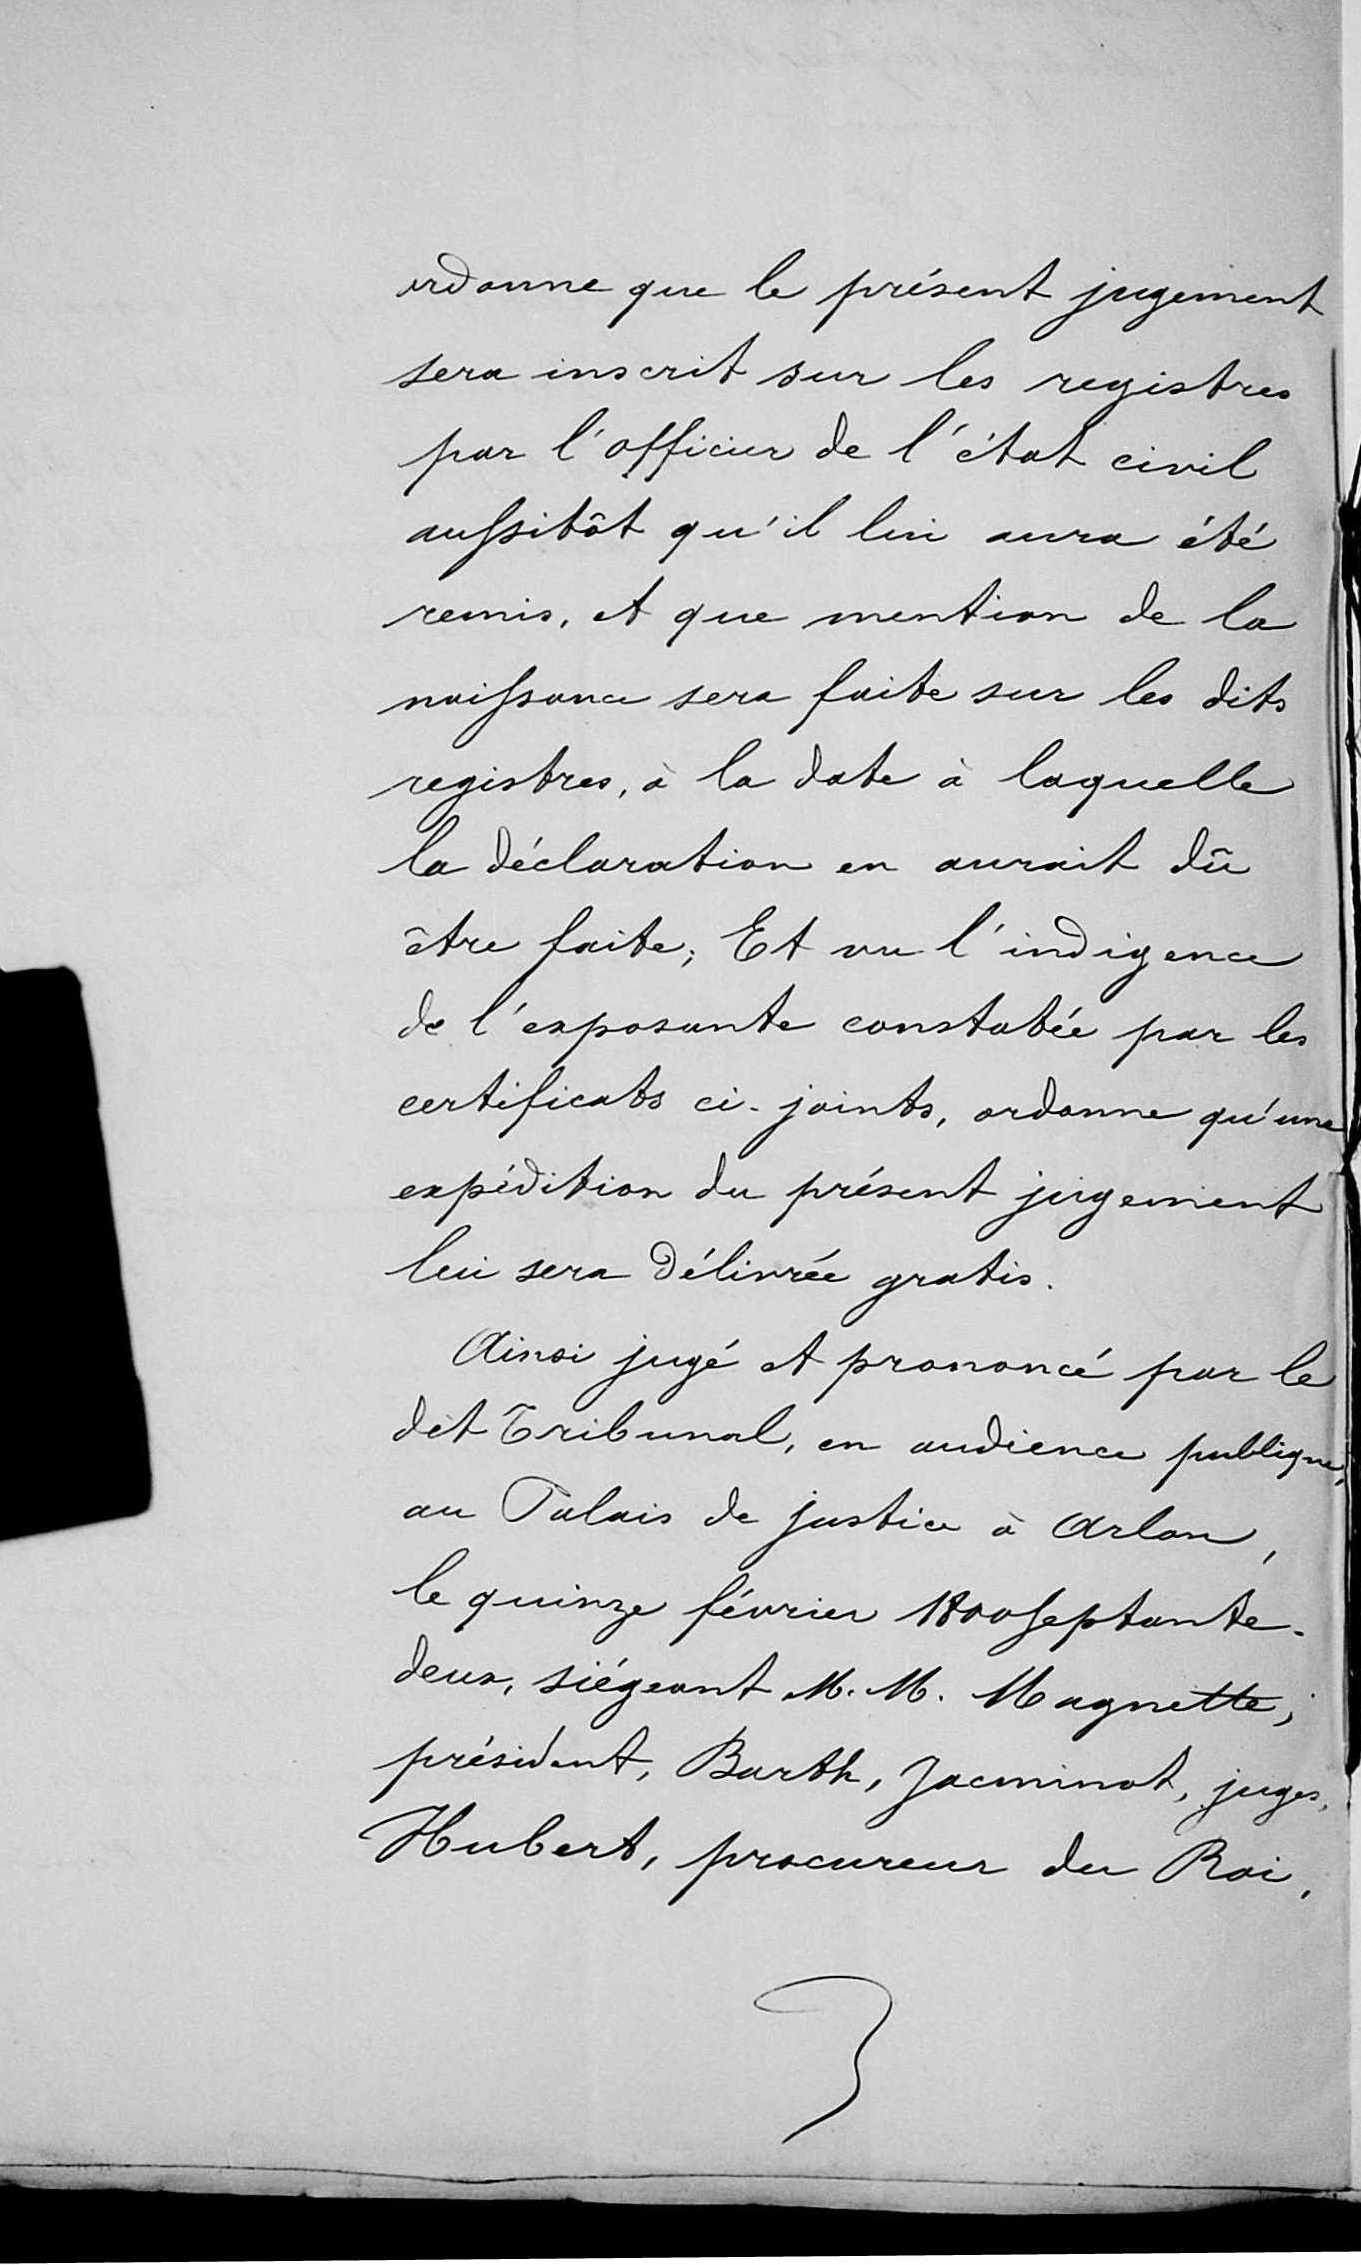 ordonne que le présent jugement
sera inscrit sur les registres
par l'officier de l'état civil
aussitôt qu'il lui aura été
remis, et que mention de la
naissance sera faite sur les dits
registres, à la date à laquelle
la déclaration en aurait dû
être faite; Et vu l'indigence
de l'exposante constatée par les
certificats ci-joints, ordonne qu'une
expédition du présent jugement
lui sera délivrée gratis.
Ainsi jugé et prononcé par le
dit Tribunal, en audience publique,
au Palais de justice à Arlon,
le quinze février 1800 septante-
deux, siégeant M. M. Magnette,
président, Barth, Jacminot, juges,
Hubert, procureur du Roi,